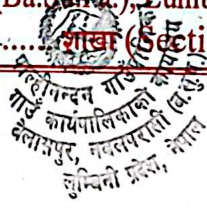 शाखा (Secti
पाल्हीनन्दन
गाउँ कार्यपालिकाको कार्यालय
नवलपरासी (ब.सु.प.)
लुम्बिनी प्रदेश, नेपाल